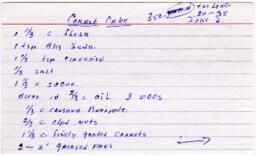 Carrot Cake
350
30-35
1 1/3 c Flour
1 tsp Bkg Soda
1 1/3 tsp cinnamon
1/3 salt
1 c sugar
Blend in 2/3 c oil 3 eggs
1/3 c crushed Pineapple
2/3 c chpd nuts
1 1/3 c. finely grated carrots
2 - 8" greased pans